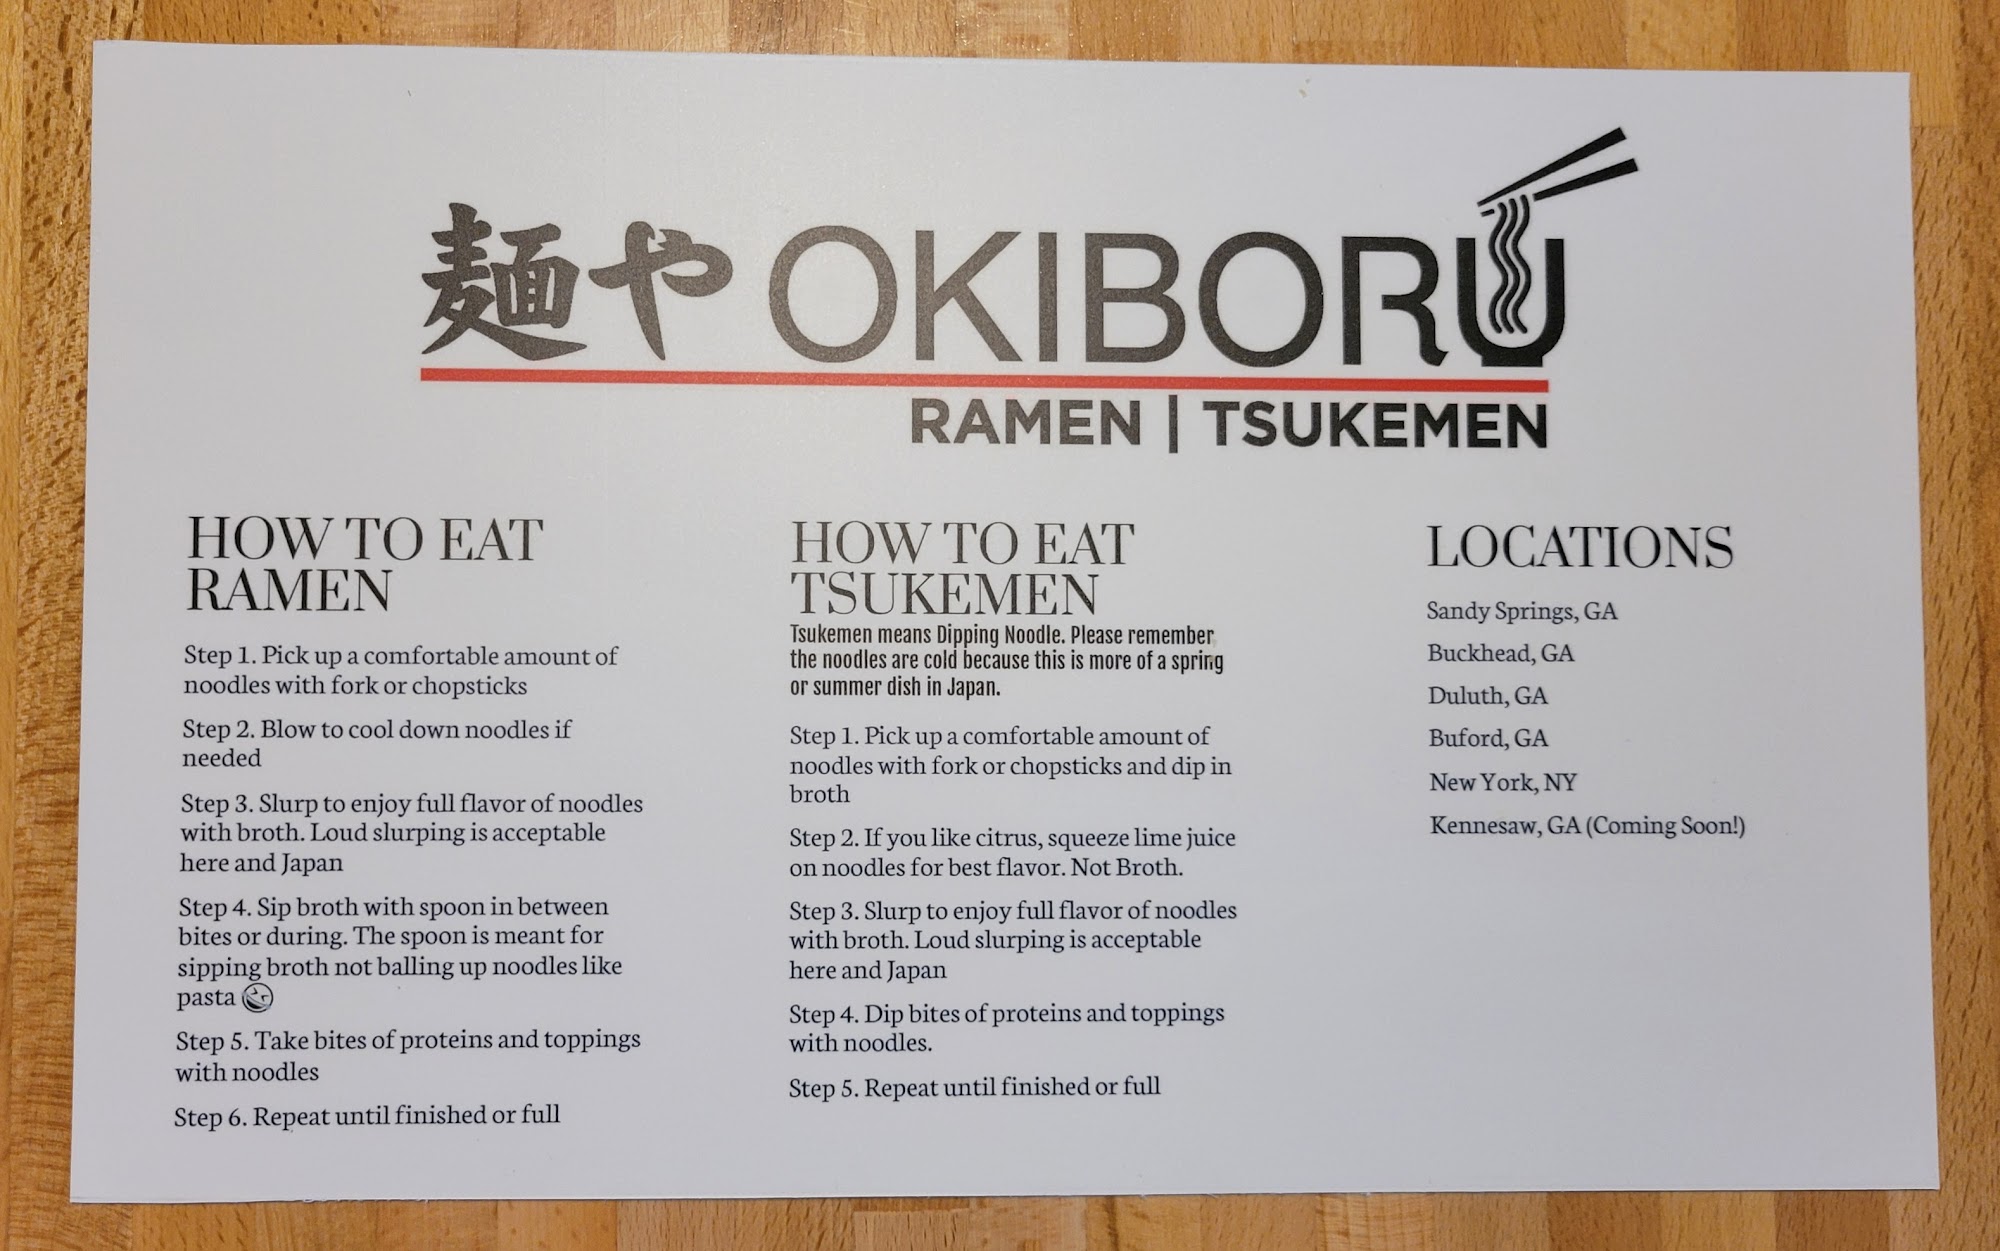 麺や OKIBORU
RAMEN | TSUKEMEN
HOW TO EAT
RAMEN
Step 1. Pick up a comfortable amount of
noodles with fork or chopsticks
Step 2. Blow to cool down noodles if
needed
Step 3. Slurp to enjoy full flavor of noodles
with broth. Loud slurping is acceptable
here and Japan
Step 4. Sip broth with spoon in between
bites or during. The spoon is meant for
sipping broth not balling up noodles like
pasta
Step 5. Take bites of proteins and toppings
with noodles
Step 6. Repeat until finished or full
HOW TO EAT
TSUKEMEN
Tsukemen means Dipping Noodle. Please remember
the noodles are cold because this is more of a spring
or summer dish in Japan.
Step 1. Pick up a comfortable amount of
noodles with fork or chopsticks and dip in
broth
Step 2. If you like citrus, squeeze lime juice
on noodles for best flavor. Not Broth.
Step 3. Slurp to enjoy full flavor of noodles
with broth. Loud slurping is acceptable
here and Japan
Step 4. Dip bites of proteins and toppings
with noodles.
Step 5. Repeat until finished or full
LOCATIONS
Sandy Springs, GA
Buckhead, GA
Duluth, GA
Buford, GA
New York, NY
Kennesaw, GA (Coming Soon!)